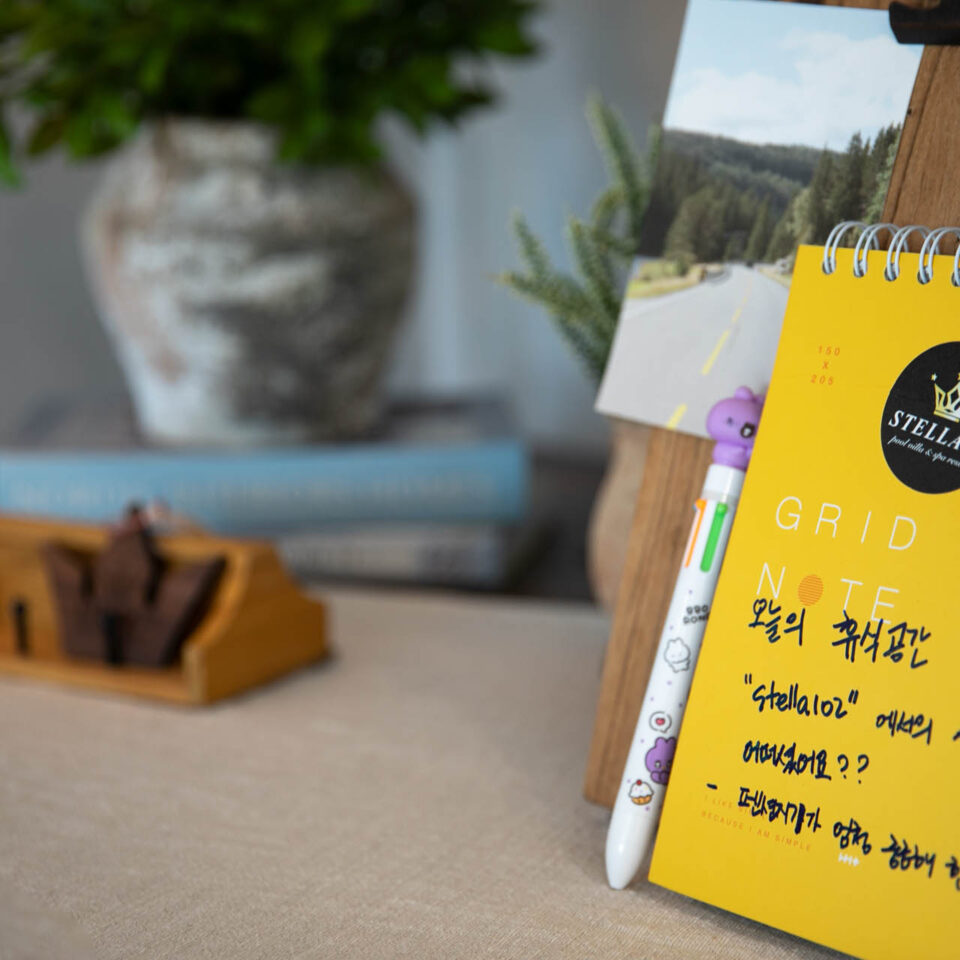 150
X
205
STELLA
pool villa & spa
GRID
NOTE
오늘의 휴식공간
"Stella102" 에서의
어떠셨어요??
- 펜션지기가 엄청 궁금해
BECAUSE I AM SIMPLE